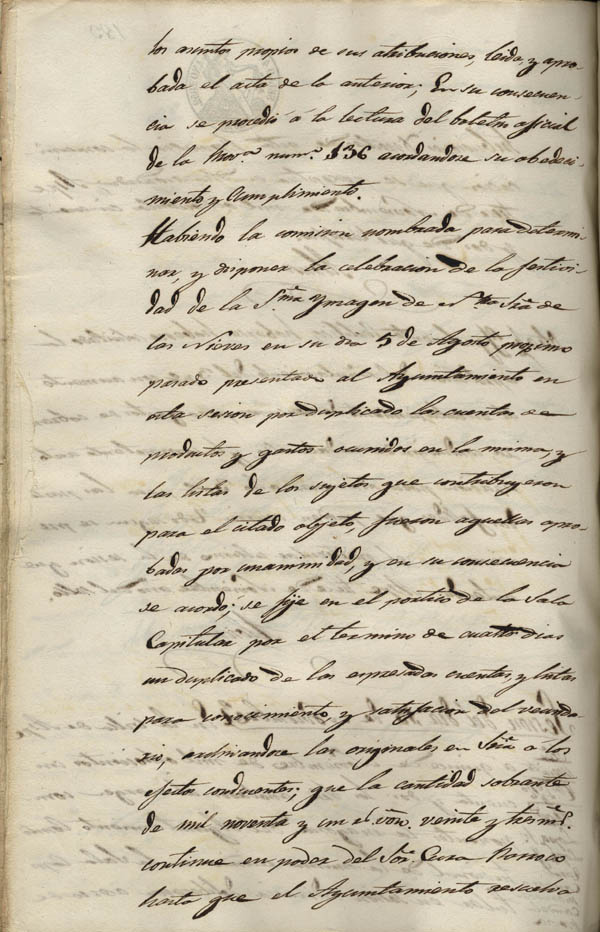 los asuntos propios de sus atribuciones, leida y apro-
bada el acta de la anterior; En su consecuen-
cia se procedió á la lectura del boletin oficial
de la Prov.ª num.º 136 acordandose su obedeci-
miento y cumplimiento.
Habiendo la comision nombrada para determi-
nar, y disponer la celebracion de la festivi-
dad de la S.ma Ymagen de N.tra Sra de
las Nieves en su dia 5 de Agosto proximo
pasado presentado al Ayuntamiento en
esta sesion por duplicado las cuentas de
productos y gastos ocurridos en la misma, y
las listas de los sujetos que contribuyeron
para el citado objeto, fueron aquellas apro-
badas por unanimidad, y en su consecuencia
se acordó; se fije en el portico de la Sala
Capitular por el termino de cuatro dias
un duplicado de las espresadas cuentas, y listas
para conocimiento, y satisfacion del vecinda-
rio, archivandose las originales en Sria a los
efectos conducentes; que la cantidad sobrante
de mil noventa y un r.s von. veinte y tres m.s
continue en poder del Sor. Cura Parroco
hasta que el Ayuntamiento resuelva